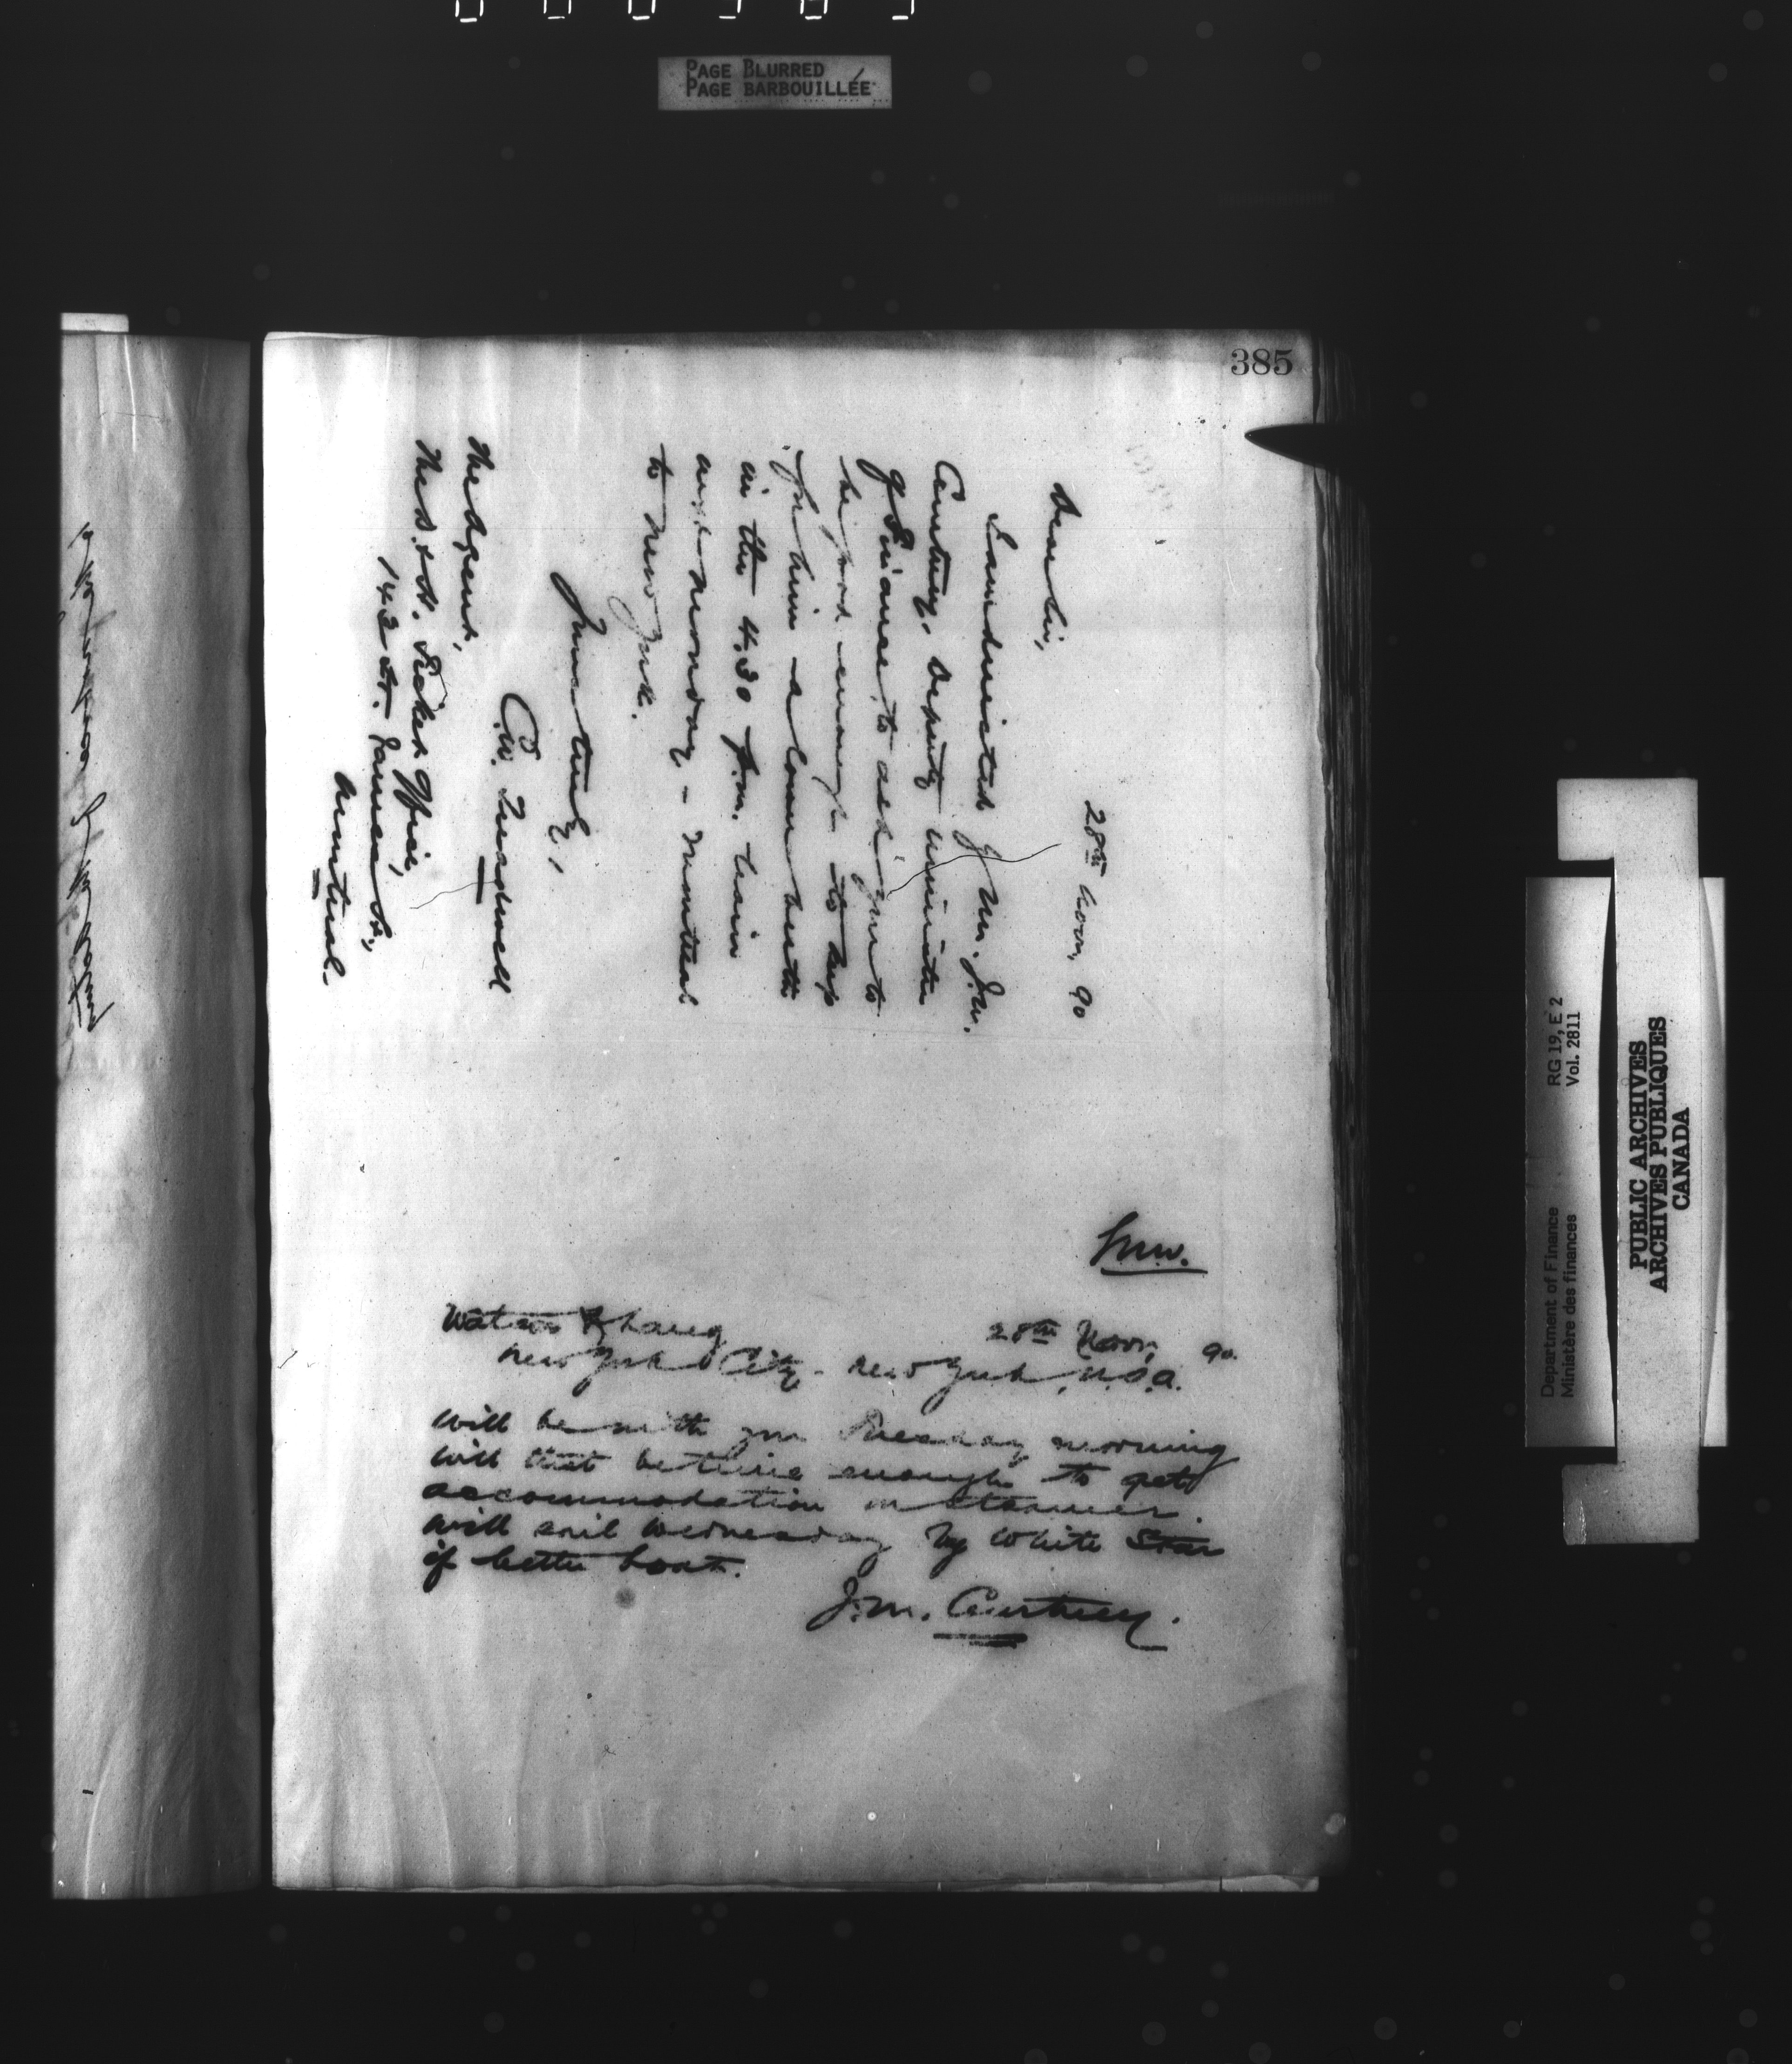 PAGE BLURRED
PAGE BARBOUILLÉE
385
28th Novr, 90
Dear Sir,
I am directed by Mr. J. M.
Courtney, Deputy Minister
of Finance, to ask you to
be good enough to keep
for him a lower berth
in the 4.30 p.m. train
next Monday - Montreal
to New York.
Yours truly,
C.W. Treadwell
The Agent,
The D. & H. Ticket Office,
143 St. James St.,
Montreal.
28th Novr, 90.
Watson & Lang
New York City - New York, U.S.A.
Will be with you Tuesday morning
will that be time enough to get
accommodation in steamer.
Will sail Wednesday by White Star
if better boat.
J.M. Courtney.
Department of Finance RG 19, E 2
Ministère des finances Vol. 2811
PUBLIC ARCHIVES
ARCHIVES PUBLIQUES
CANADA